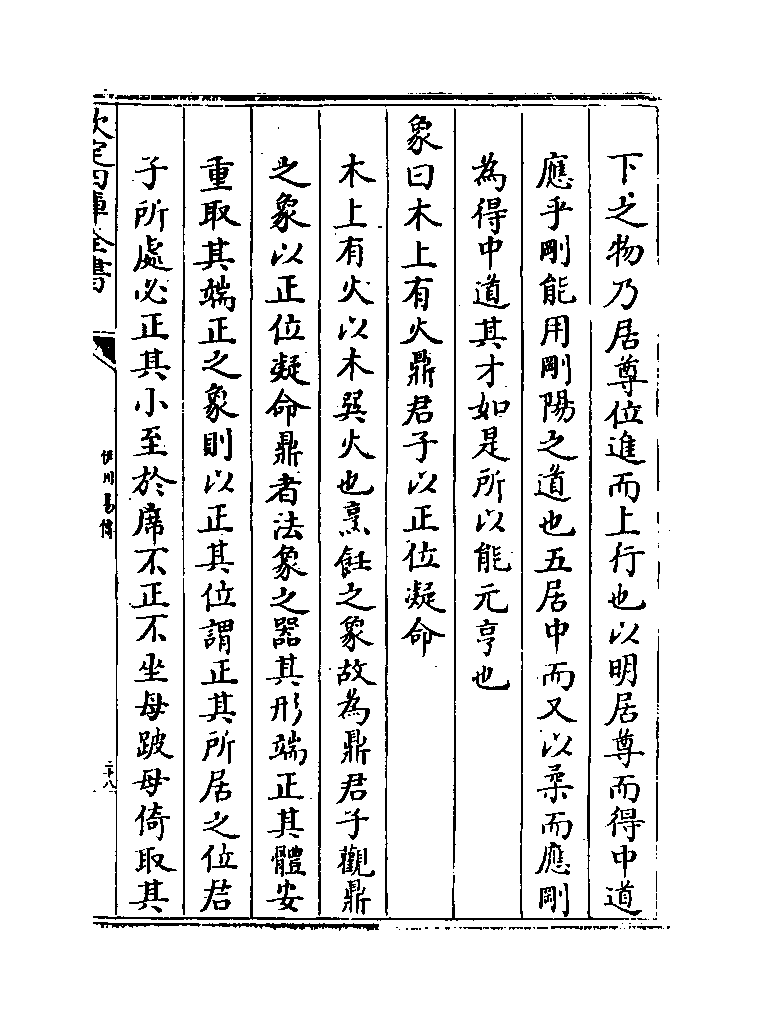 下之物乃居尊位進而上行也以明居尊而得中道
應乎剛能用剛陽之道也五居中而又以柔而應剛
為得中道其才如是所以能元亨也
象曰木上有火鼎君子以正位凝命
木上有火以木巽火也烹飪之象故為鼎君子觀鼎
之象以正位凝命鼎者法象之器其形端正其體安
重取其端正之象則以正其位謂正其所居之位君
子所處必正其小至於席不正不坐毋跛毋倚取其
欽定四庫全書
伊川易傳
二十八